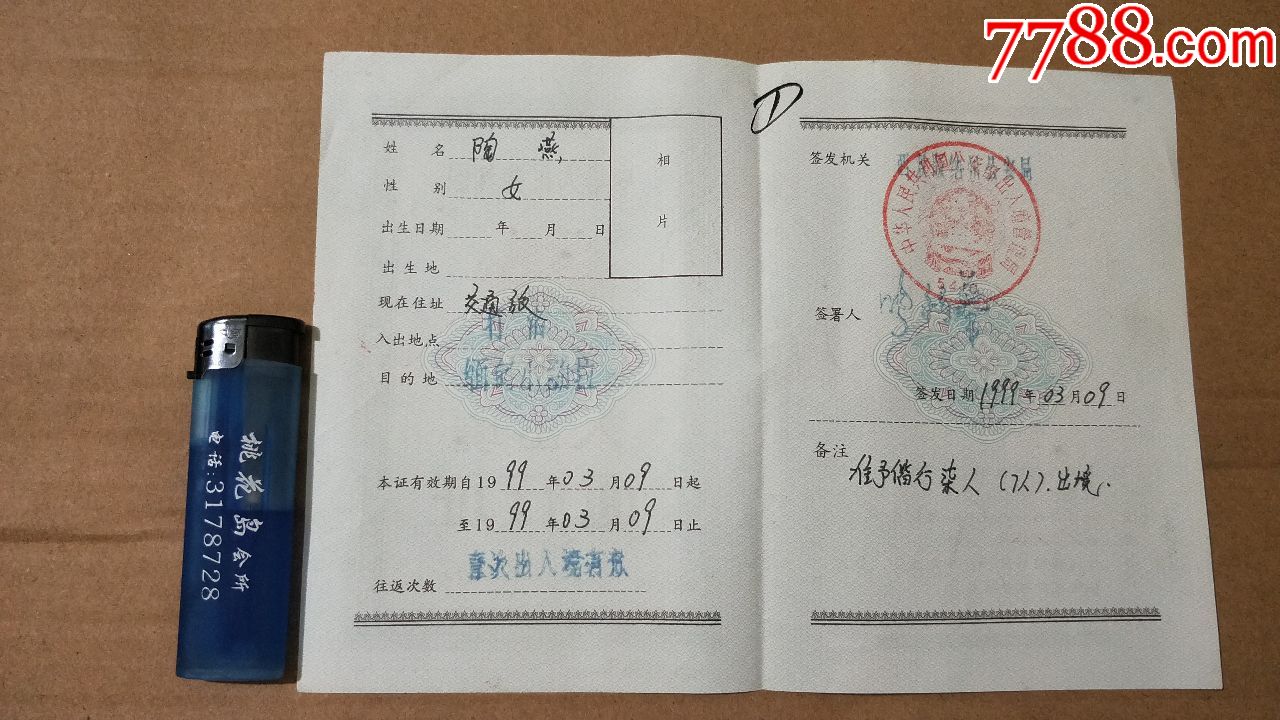 7788.com
姓 名 陶燕
性 别 女
出生日期 年 月 日
出生地
现在住址
入出地点
目的地
相
片
本证有效期自1999年03月09日起
至1999年03月09日止
往返次数 壹次出入境有效
签发机关
中华人民共和国公安部出入境管理局
签署人
签发日期1999年03月09日
备注
准予偕行 人(7人).出境.
桃花岛会所
电话:3178728